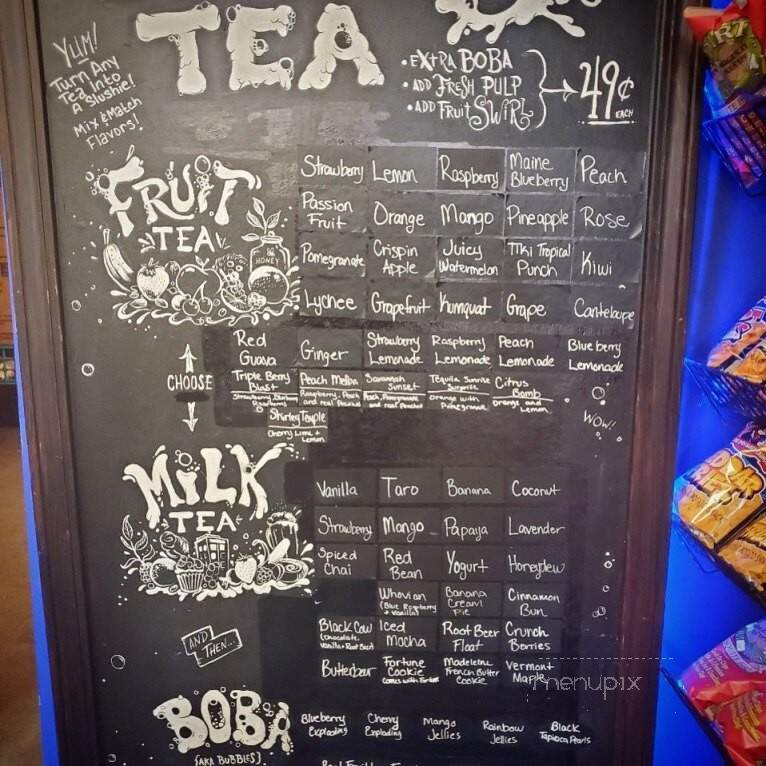 TEA
YUM!
Turn Any
Tea Into
A Slushie!
Mix & Match
Flavors!
• EXTRA BOBA
• ADD FRESH PULP
• ADD FRUIT SWIRL
49¢
EACH
FRUIT
TEA
HONEY
Strawberry Lemon Raspberry Maine Blueberry Peach
Passion Fruit Orange Mango Pineapple Rose
Pomegranate Crispin Apple Juicy Watermelon Tiki Tropical Punch Kiwi
Lychee Grapefruit Kumquat Grape Canteloupe
Red Guava Ginger Strawberry Lemonade Raspberry Lemonade Peach Lemonade Blueberry Lemonade
Triple Berry Blast Peach Melba Savannah Sunset Tequila Sunrise Surprise Citrus Bomb
Raspberry, Peach and real Peaches
Peach, Pomegranate and real Peaches
Orange with Pomegranate
Orange and Lemon
Shirley Temple
Cherry Lime + Lemon
CHOOSE
WOW!
MILK
TEA
Vanilla Taro Banana Coconut
Strawberry Mango Papaya Lavender
Spiced Chai Red Bean Yogurt Honeydew
Whovian (Blue Raspberry + Vanilla) Banana Cream Pie Cinnamon Bun
Black Cow (Chocolate, Vanilla + Root Beer) Iced Mocha Root Beer Float Crunch Berries
Butterbeer Fortune Cookie Comes with Fortune Madeleine French Butter Cookie Vermont Maple
AND THEN...
menupix
BOBA
(AKA BUBBLES)
Blueberry Exploding Cherry Exploding Mango Jellies Rainbow Jellies Black Tapioca Pearls